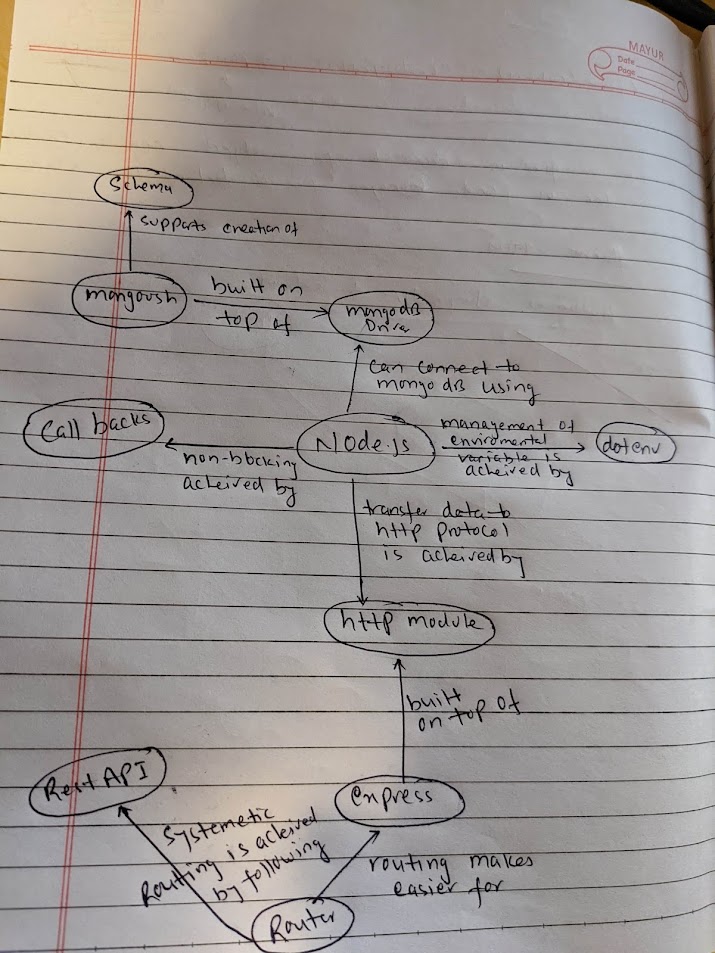 MAYUR
Date
Page
Schema
supports creation of
mongoush
built on
top of
mongodB
Driver
can connect to
mongodB using
Call backs
non-blocking
acheived by
Node.js
management of
enviromental
variable is
acheived by
dotenv
transfer data to
http protocol
is acheived by
http module
built
on top of
Rest API
express
Systemetic
Routing is acheived
by following
routing makes
easier for
Router